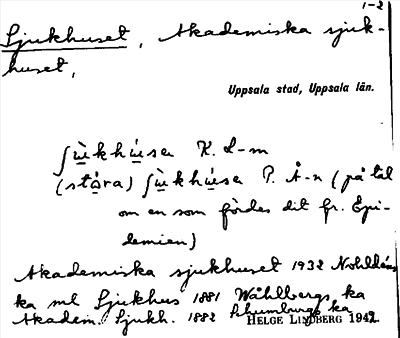 1-2
Sjukhuset, Akademiska sjuk-
huset,
Uppsala stad, Uppsala län.
ʃù̲khú̲sen K. L-m
(stå̲ra) ʃù̲khú̲sen P. Å-n (på tal
om en som fördes dit fr. Epi-
demien)
Akademiska sjukhuset 1932
ka ml Sjukhus 1881 Wåhlbergs ka
Akadem. Sjukh. 1882 ka
HELGE LINDBERG 1942.